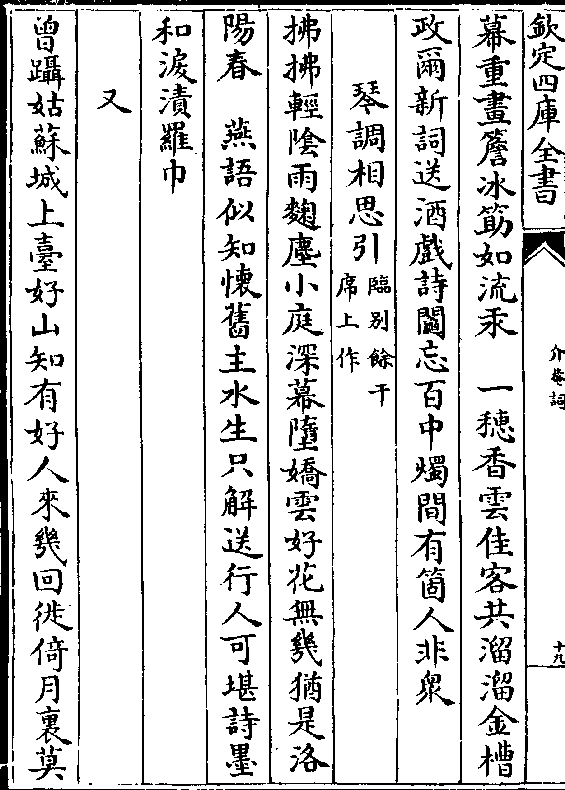 欽定四庫全書
介菴詞
十九
幕重畫簷冰筯如流汞　一穗香雲佳客共溜溜金槽
政爾新詞送酒戲詩鬮忘百中燭間有箇人非衆
琴調相思引臨別餘干席上作
拂拂輕陰雨麴塵小庭深幕墮嬌雲好花無幾猶是洛
陽春　燕語似知懷舊主水生只解送行人可堪詩墨
和淚漬羅巾
又
曾躡姑蘇城上臺好山知有好人來幾回徙倚月裏莫